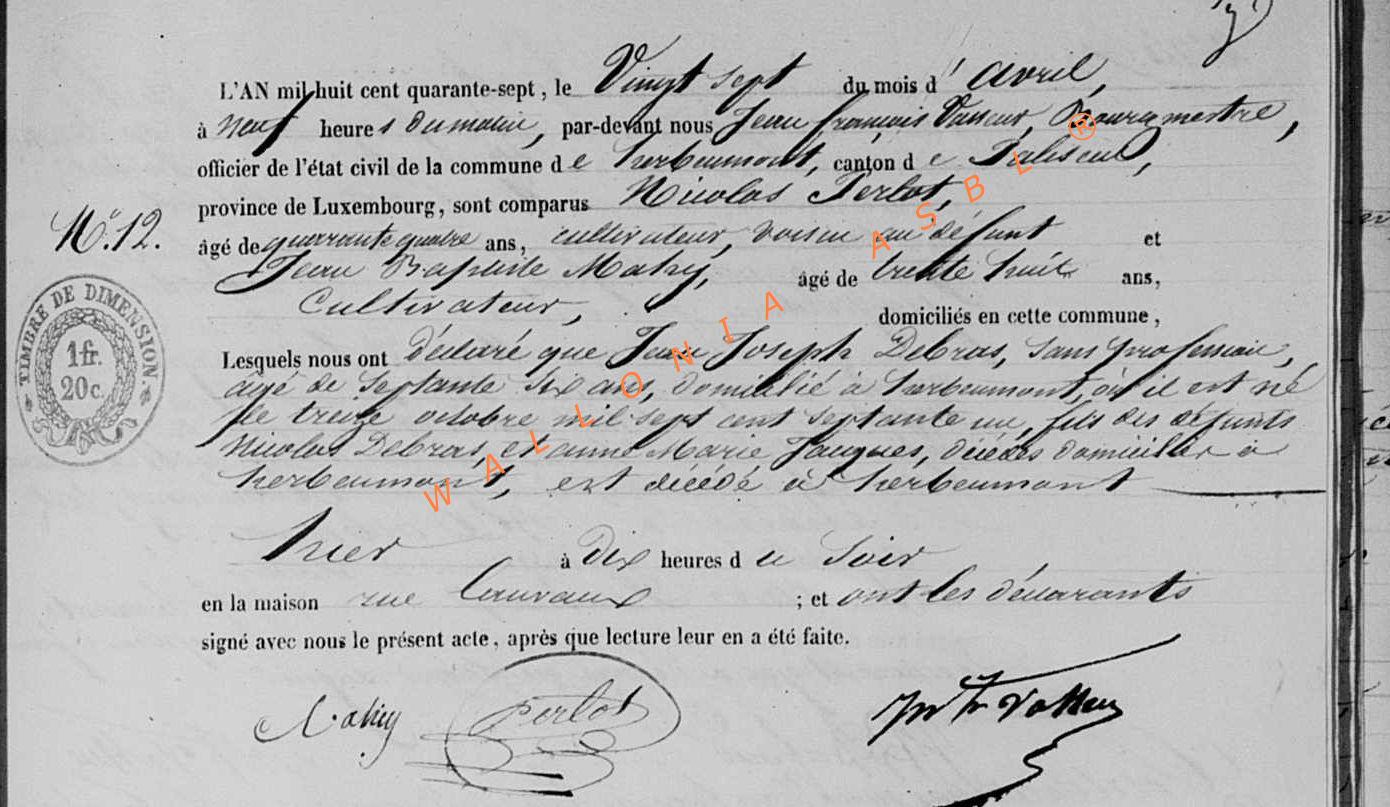 L'AN mil huit cent quarante-sept, le Vingt sept du mois d'avril,
à neuf heures du matin, par-devant nous Jean françois Vasseur, Bourgmestre,
officier de l'état civil de la commune de herbeumont, canton de Paliseul,
province de Luxembourg, sont comparus Nicolas Perlot,
N.º 12.
âgé de quarante quatre ans, cultivateur, voisin au défunt et
Jean Baptiste Mahy, âgé de trente huit ans,
Cultivateur, domiciliés en cette commune,
TIMBRE DE DIMENSION.
1 fr.
20 c.
Lesquels nous ont déclaré que Jean Joseph Debras, sans profession,
agé de septante six ans, domicilié à herbeumont, où il est né
le treize octobre mil sept cent septante un, fils des défunts
Nicolas Debras, et anne Marie Jacques, décédés domiciliés à
herbeumont, est décédé à herbeumont
hier à Dix heures du Soir
en la maison rue ; et ont les déclarants
signé avec nous le présent acte, après que lecture leur en a été faite.
Mahy Perlot
WALLONIA ASBL ®